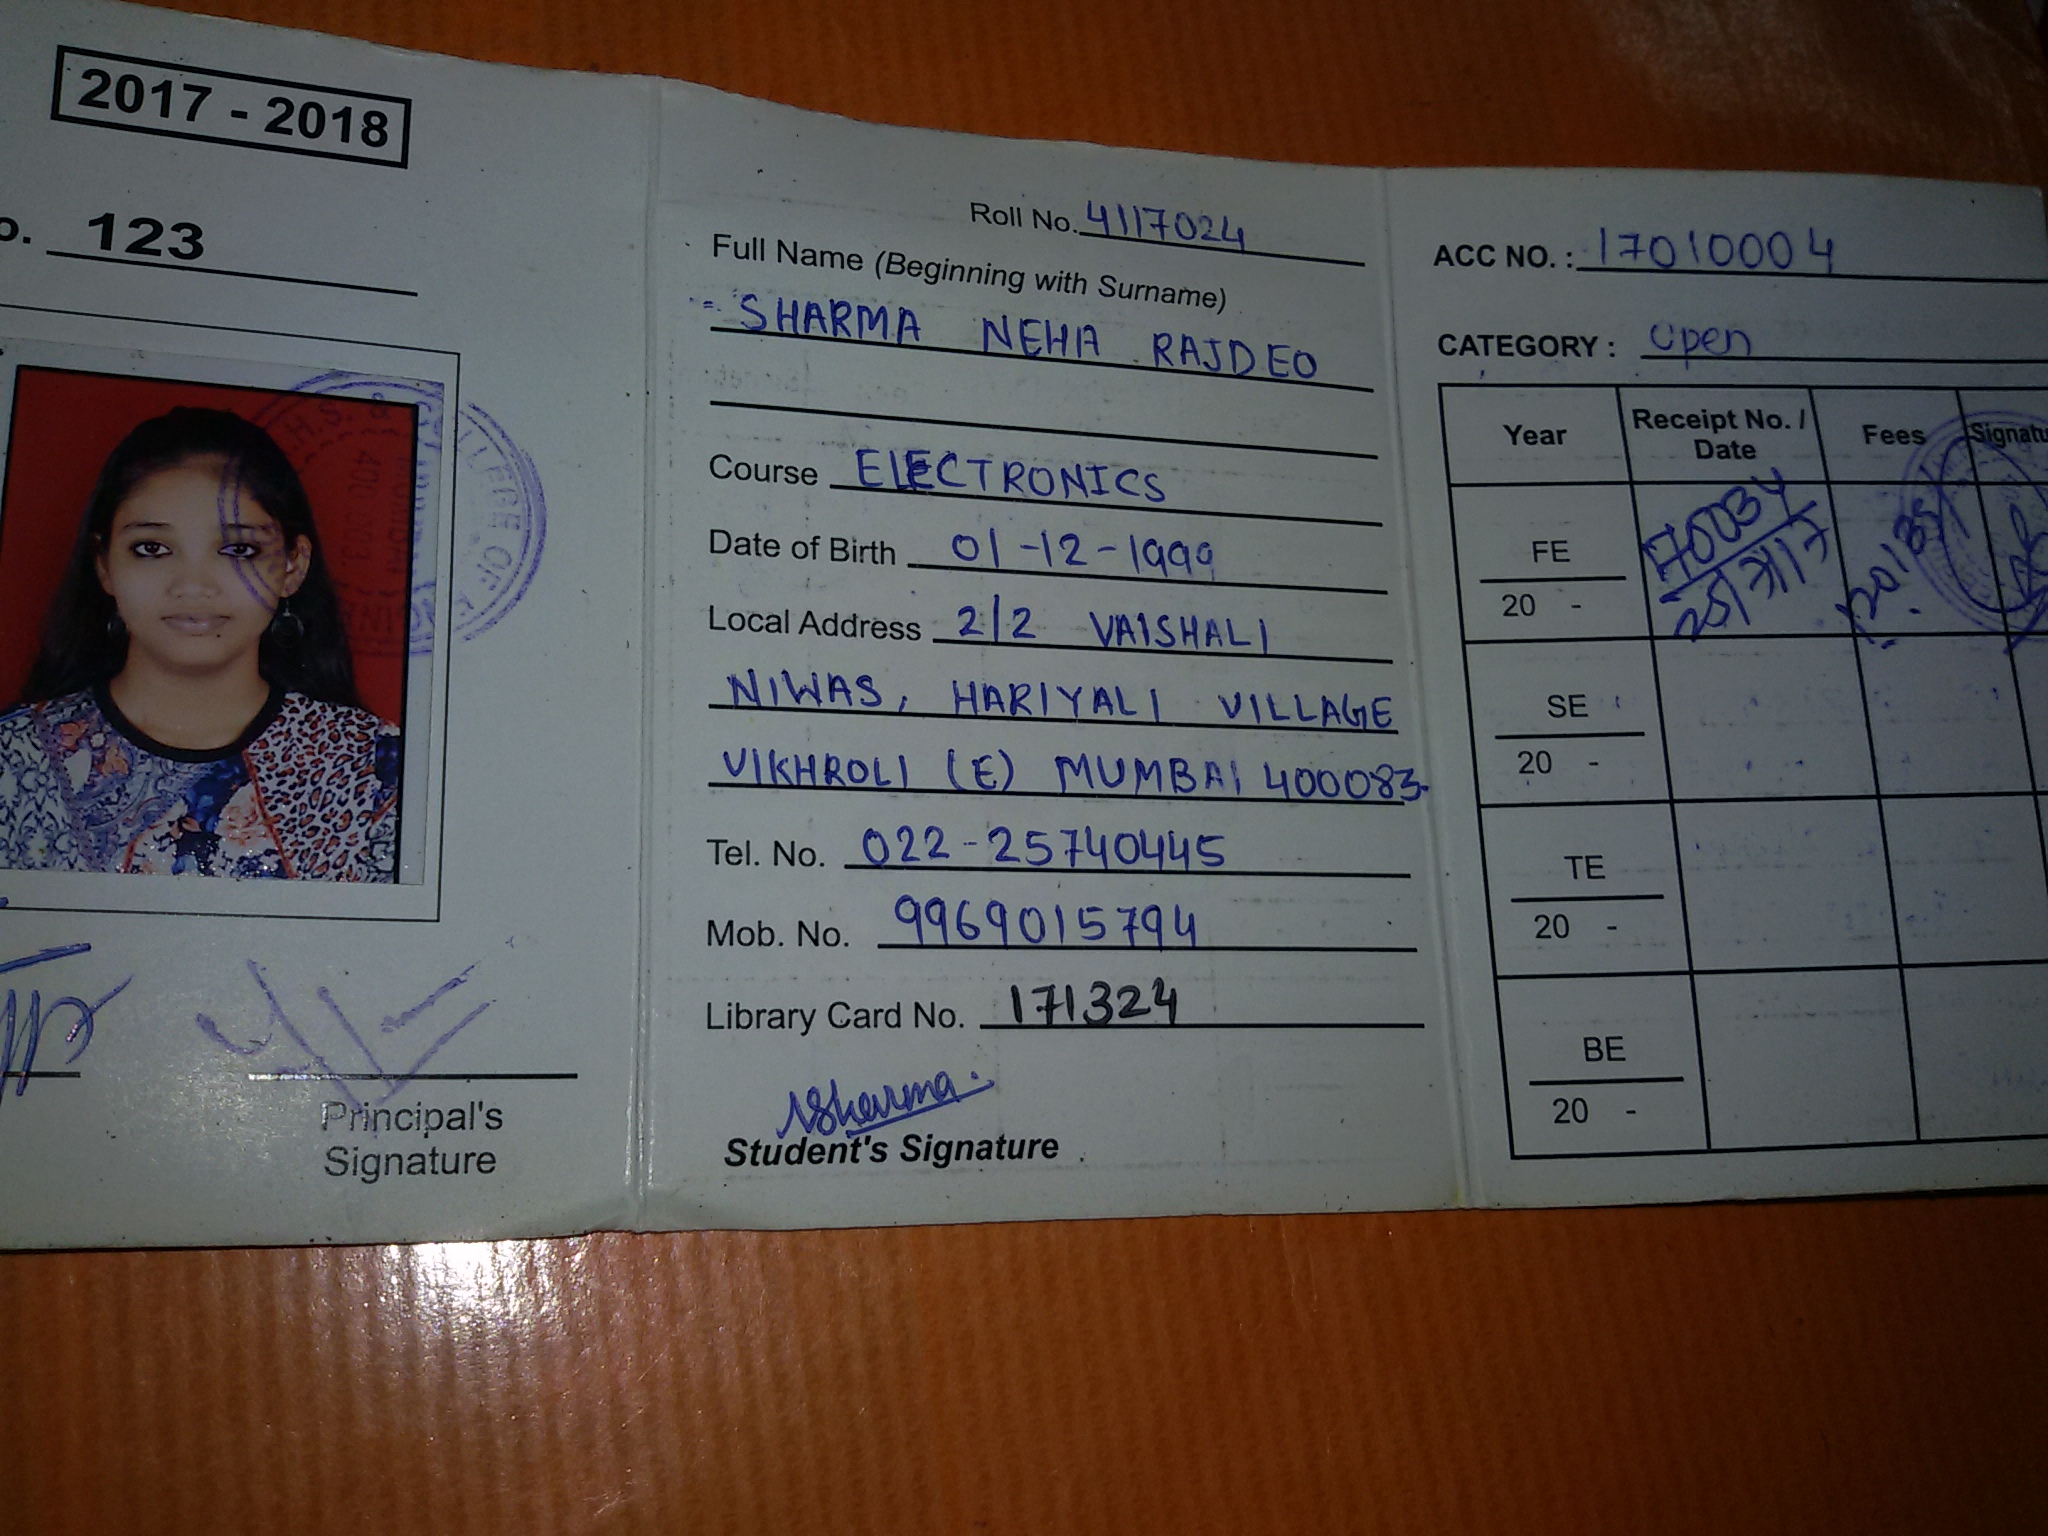 2017 - 2018
o. 123
Principal's
Signature
Roll No. 4117024
Full Name (Beginning with Surname)
SHARMA NEHA RAJDEO
Course ELECTRONICS
Date of Birth 01-12-1999
Local Address 2/2 VAISHALI
NIWAS, HARIYALI VILLAGE
VIKHROLI (E) MUMBAI 400083.
Tel. No. 022-25740445
Mob. No. 9969015794
Library Card No. 171324
NSharma.
Student's Signature
ACC NO. : 17010004
CATEGORY : open
Year Receipt No. / Date Fees Signatu
FE
20 -
SE
20 -
TE
20 -
BE
20 -